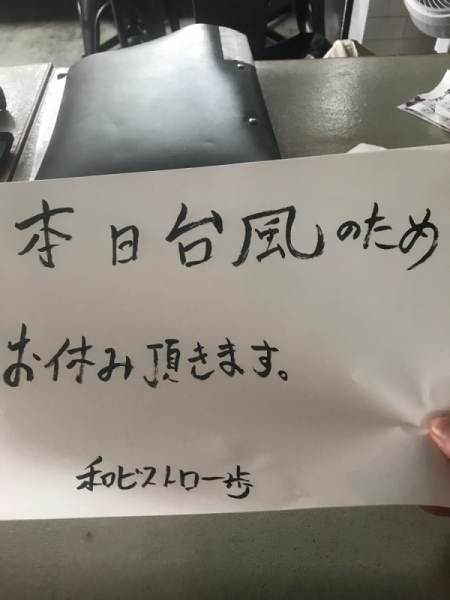 本日台風のため
お休み頂きます。
和ビストロ一歩